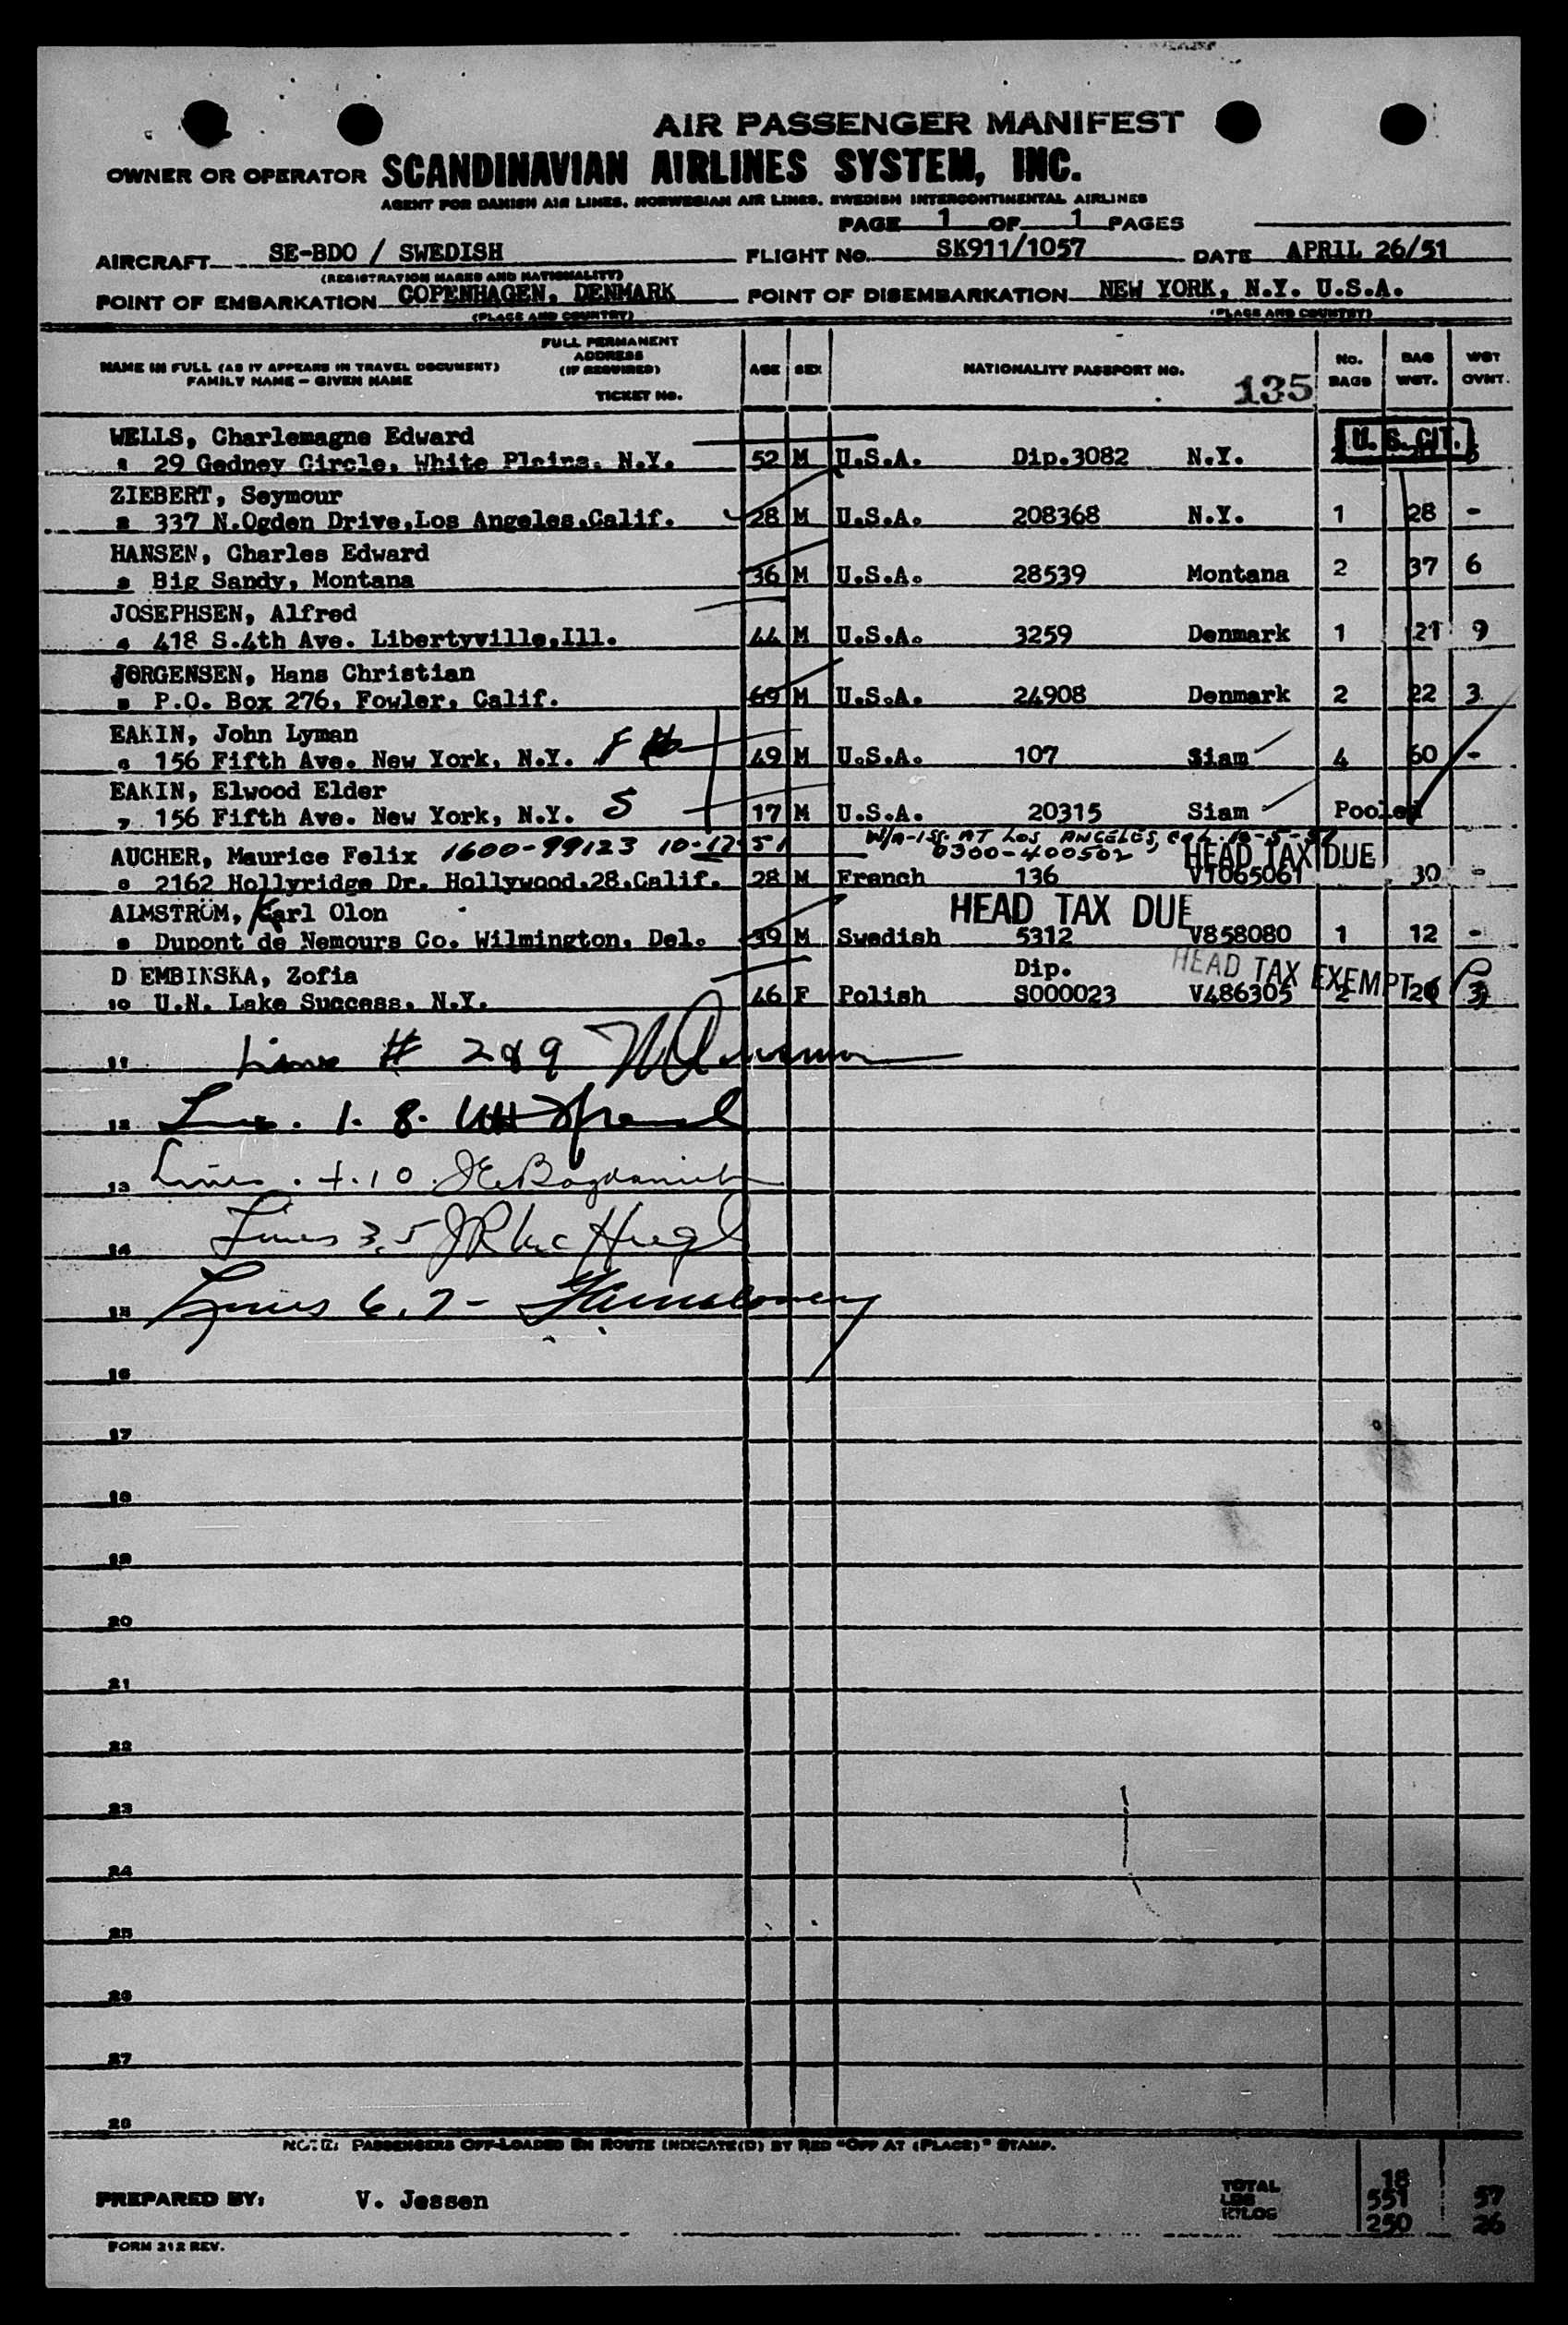 AIR PASSENGER MANIFEST
OWNER OR OPERATOR SCANDINAVIAN AIRLINES SYSTEM, INC.
AGENT FOR DANISH AIR LINES, NORWEGIAN AIR LINES, SWEDISH INTERCONTINENTAL AIRLINES
PAGE 1 OF 1 PAGES
AIRCRAFT SE-BDO / SWEDISH FLIGHT No. SK911/1057 DATE APRIL 26/51
(REGISTRATION MARKS AND NATIONALITY)
POINT OF EMBARKATION COPENHAGEN, DENMARK POINT OF DISEMBARKATION NEW YORK, N.Y. U.S.A.
(PLACE AND COUNTRY) (PLACE AND COUNTRY)
NAME IN FULL (AS IT APPEARS IN TRAVEL DOCUMENT)
FAMILY NAME - GIVEN NAME
FULL PERMANENT
ADDRESS
(IF REQUIRED)
TICKET No.
AGE SEX NATIONALITY PASSPORT NO. 135
No. BAGS
BAG WGT.
WGT OVWT.
WELLS, Charlemagne Edward U. S. CIT.
1 29 Gedney Circle, White Plains, N.Y. 52 M U.S.A. Dip.3082 N.Y.
ZIEBERT, Seymour
2 337 N.Ogden Drive,Los Angeles,Calif. 28 M U.S.A. 208368 N.Y. 1 28 -
HANSEN, Charles Edward
3 Big Sandy, Montana 36 M U.S.A. 28539 Montana 2 37 6
JOSEPHSEN, Alfred
4 418 S.4th Ave. Libertyville,Ill. 44 M U.S.A. 3259 Denmark 1 21 9
JORGENSEN, Hans Christian
5 P.O. Box 276, Fowler, Calif. 69 M U.S.A. 24908 Denmark 2 22 3
EAKIN, John Lyman
6 156 Fifth Ave. New York, N.Y. F 49 M U.S.A. 107 Siam 4 60 -
EAKIN, Elwood Elder
7 156 Fifth Ave. New York, N.Y. S 17 M U.S.A. 20315 Siam Pooled
AUCHER, Maurice Felix 1600-99123 10-17-51 AT LOS ANGELES,
0300-400502 HEAD TAX DUE
8 2162 Hollyridge Dr. Hollywood.28.Calif. 28 M French 136 V1065061 30 -
ALMSTRÖM, Karl Olon HEAD TAX DUE
9 Dupont de Nemours Co. Wilmington, Del. 39 M Swedish 5312 V858080 1 12 -
D EMBINSKA, Zofia Dip. HEAD TAX EXEMPT
10 U.N. Lake Success, N.Y. 46 F Polish S000023 V486305 2 26 3
11 Lines # 2 & 9
12 1. 8.
13 Lines . 4.10.
14 Lines 3,5
15 Lines 6.7-
16
17
18
19
20
21
22
23
24
25
26
27
28
NOTE: PASSENGERS OFF-LOADED EN ROUTE INDICATE(D) BY RED "OFF AT (PLACE)" STAMP.
PREPARED BY: V. Jessen
TOTAL 18
LBS 551 57
KILOS 250 26
FORM 212 REV.